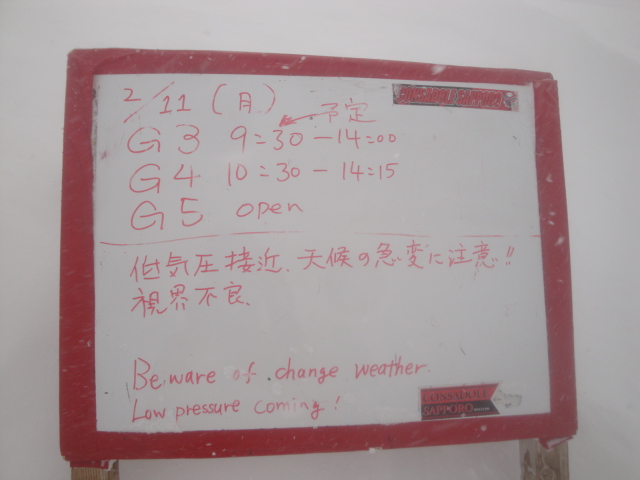 2/11 (月)
予定
G3 9:30-14:00
G4 10:30-14:15
G5 open
低気圧接近、天候の急変に注意!!
視界不良、
Beware of change weather.
Low pressure coming!
CONSADOLE
SAPPORO